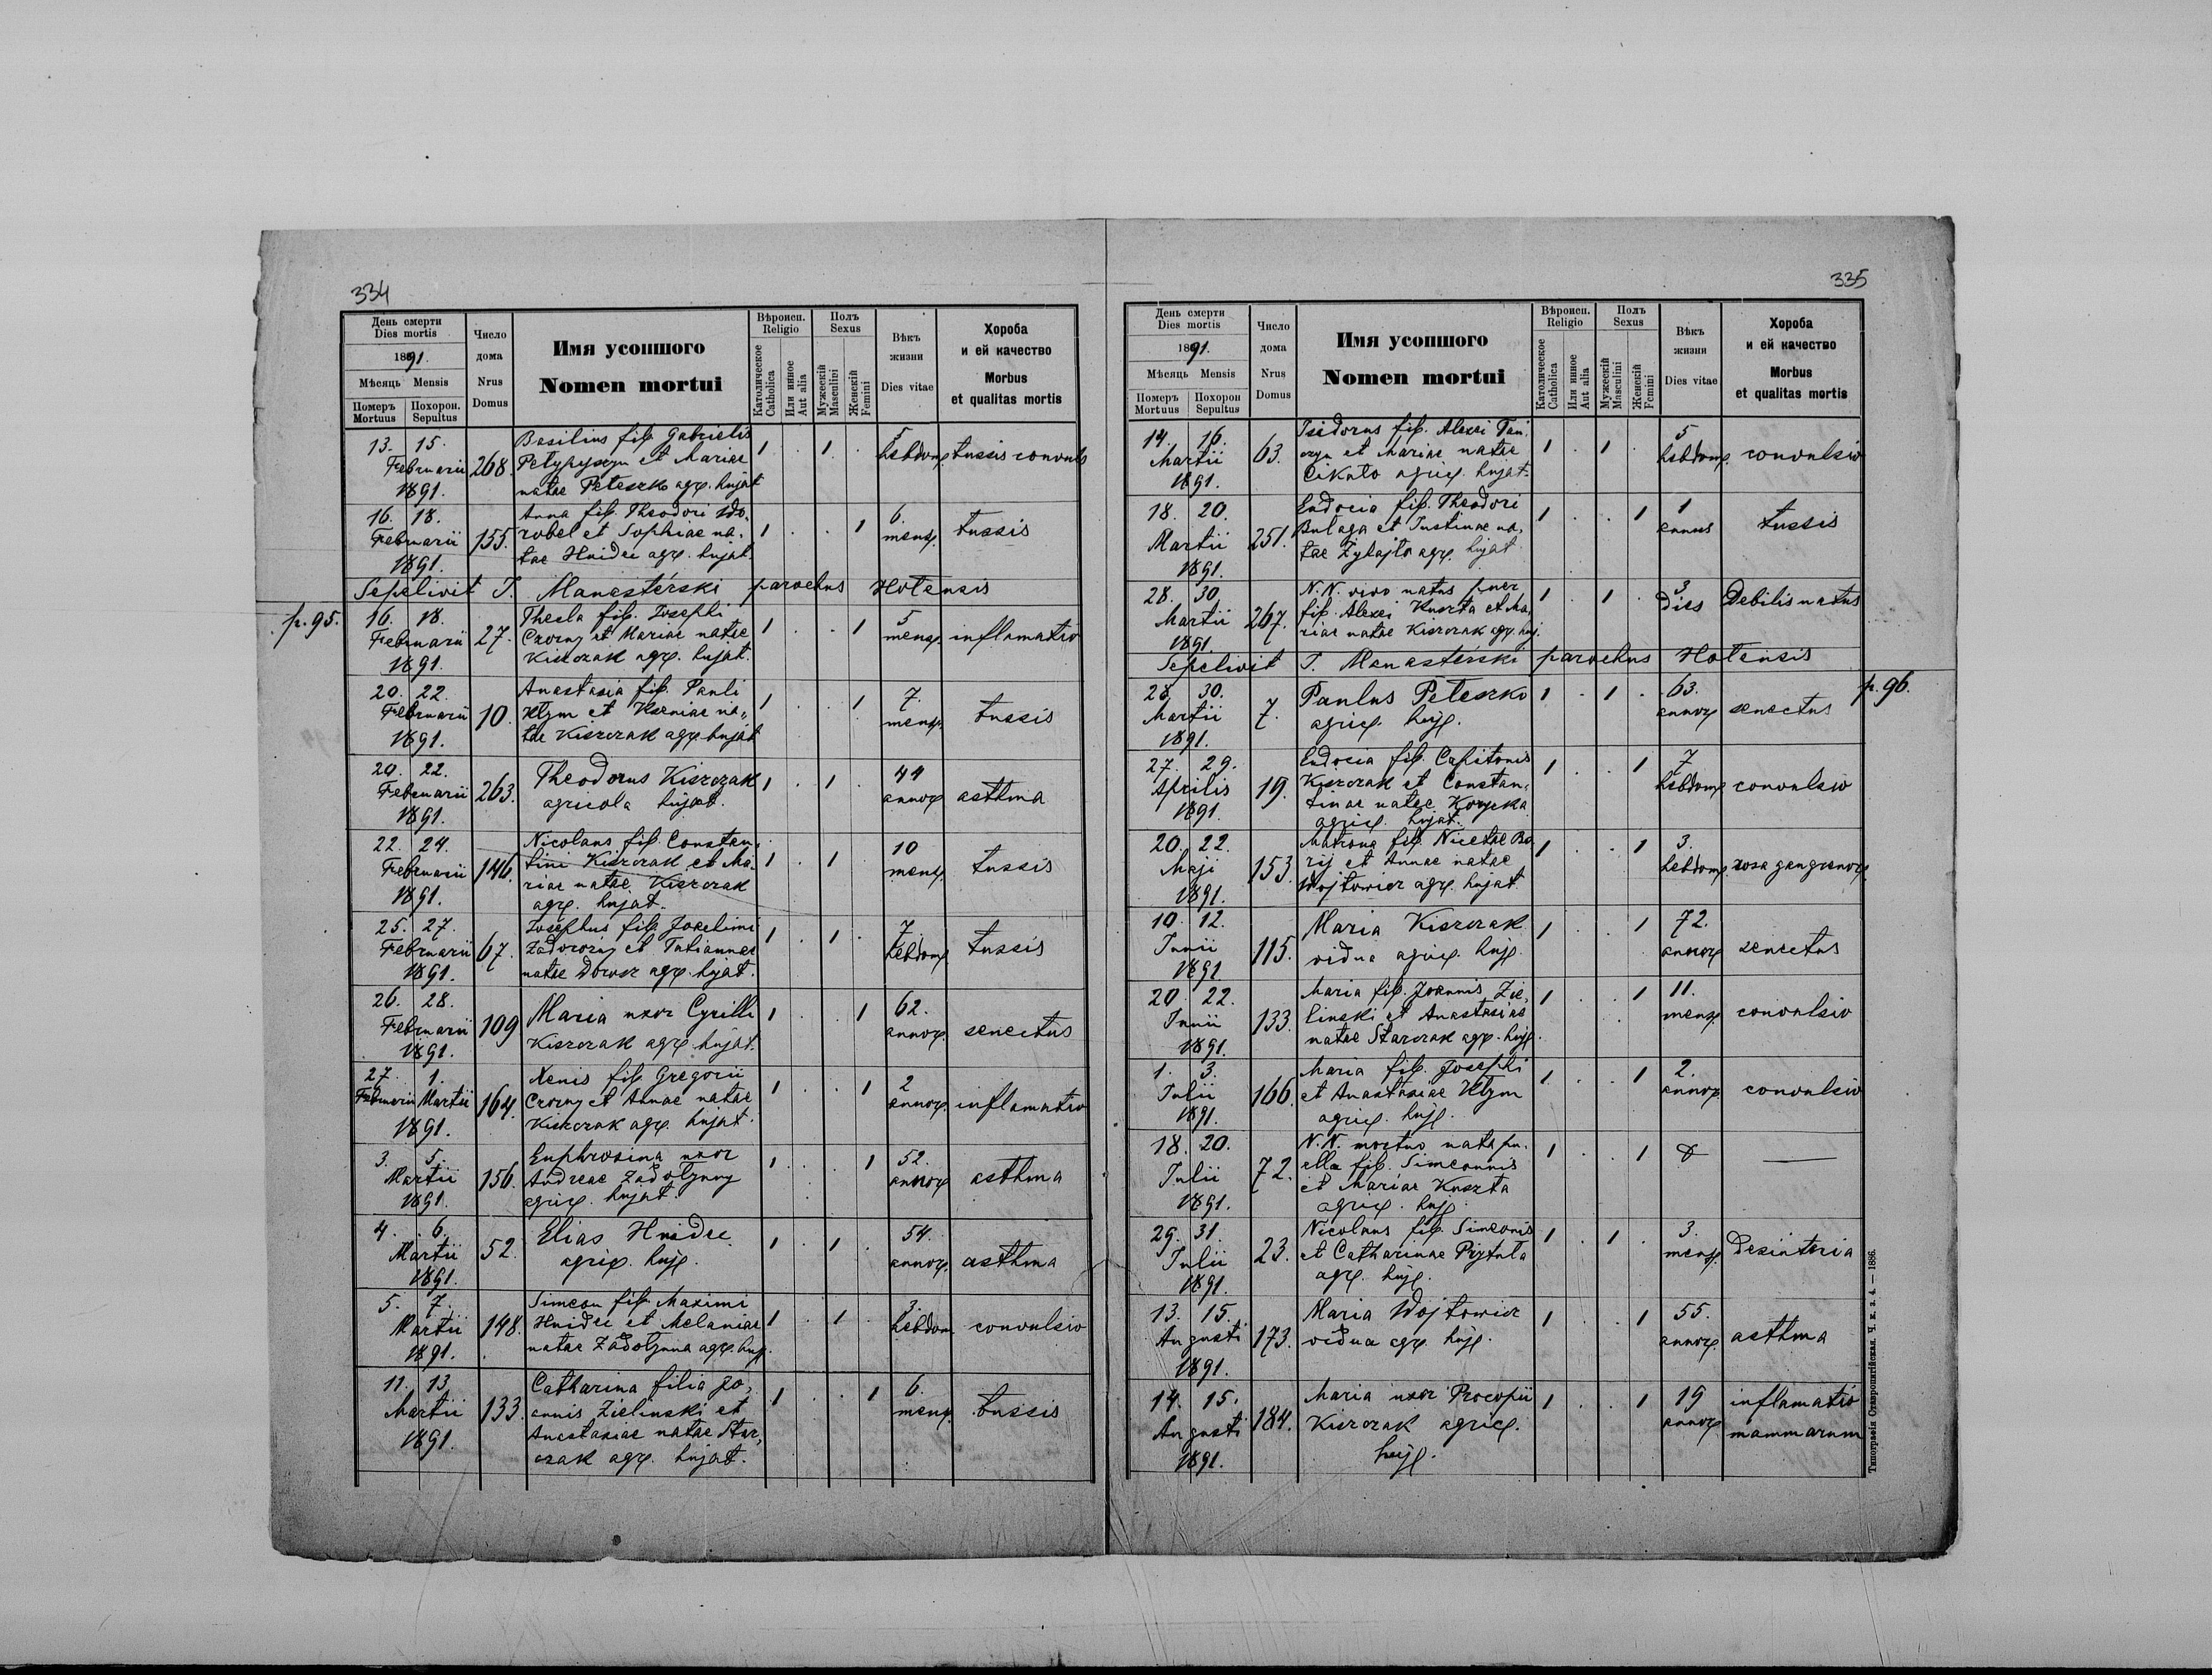 334
День смерти
Dies mortis
1891.
Мѣсяць Mensis
Померъ Похорон.
Mortuus Sepultus
Число
дома
Nrus
Domus
Имя усопшого
Nomen mortui
Вѣроисп.
Religio
Католическое
Catholica
Или инное
Aut alia
Полъ
Sexus
Мужескій
Masculini
Женскій
Femini
Вѣкъ
жизни
Dies vitae
Хороба
и ей качество
Morbus
et qualitas mortis
13. 15.
Februarii
1891.
268.
Basilius fil. Gabrielis
et Mariae
natae Peteszko agr. hujat
1 . 1 .
5
hebdom.
tussis convuls
16. 18.
Februarii
1891.
155.
Anna fil. Theodori Wo,
robel et Sophiae na,
tae Hnidec agr. hujat.
1 . . 1
6.
mens.
tussis
Sepelivit J. Manasterski parochus Hotensis
p. 95.
16. 18.
Februarii
1891.
27.
Thecla fil. Josephi
Czorny et Mariae natae
Kiszczak agr. hujat.
1 . . 1
5
mens.
inflamatio
20. 22.
Februarii
1891.
10.
Anastasia fil. Pauli
Klym et Kseniae na,,
tae Kiszczak agr. hujat
1 . . 1
7.
mens.
tussis
20. 22.
Februarii
1891.
263.
Theodorus Kiszczak
agricola hujat.
1 . 1 .
44
annor.
asthma
22. 24.
Februarii
1891.
146.
Nicolaus fil. Constan,
tini Kiszczak et Ma,
riae natae Kiszczak
agr. hujat.
1 . 1 .
10
mens.
tussis
25. 27.
Februarii
1891.
67.
Josephus fil. Joachimi
et Tatiannae
natae agr. hujat.
1 . 1 .
7.
hebdom.
tussis
26. 28.
Februarii
1891.
109
Maria uxor Cyrilli
Kiszczak agr. hujat.
1 . . 1
62.
annor.
senectus
27. 1.
Februarii Martii
1891.
164.
Xenis fil. Gregorii
Czorny et Annae natae
Kiszczak agr. hujat.
1 . . 1
2
annor.
inflamatio
3. 5.
Martii
1891.
156.
Euphrosina uxor
Andreae Zadolynny
agric. hujat
1 . . 1
52.
annor.
asthma
4. 6.
Martii
1891.
52.
Elias Hnidec
agric. huj.
1 . 1 .
54.
annor.
asthma
5. 7.
Martii
1891.
148.
Simeon fil. Maximi
Hnidec et Melaniae
natae Zadolynna agr. huj.
1 . 1 .
3.
hebdom
convulsio
11. 13
Martii
1891.
133.
Catharina filia Jo,
annis Zielinski et
Anastasiae natae Star,
czak agr. hujat.
1 . . 1
6.
mens.
tussis
335
День смерти
Dies mortis
1891.
Мѣсяць Mensis
Померъ Похорон
Mortuus Sepultus
Число
дома
Nrus
Domus
Имя усопшого
Nomen mortui
Вѣроисп.
Religio
Католическое
Catholica
Или инное
Aut alia
Полъ
Sexus
Мужескій
Masculini
Женскій
Femini
Вѣкъ
жизни
Dies vitae
Хороба
и ей качество
Morbus
et qualitas mortis
14. 16.
Martii
1891.
63.
Isidorus fil. Alexei
et Mariae natae
Cikuto agric. hujat.
1 . 1 .
5
hebdom.
convulsio
18. 20.
Martii
1891.
251.
Eudocia fil. Theodori
Bulaga et Justinae na,
tae Zylajto agr. hujat
1 . . 1
1
annus
tussis
28. 30.
Martii
1891.
267.
N. N. vivo natus puer
fil. Alexei Kuszta et Ma,
riae natae Kiszczak agr. huj.
1 . 1 .
3
dies
Debilis natus
Sepelivit J. Manasterski parochus Hotensis
28. 30.
Martii
1891.
7.
Paulus Peteszko
agric. huj.
1 . 1 .
63.
annor.
senectus
p. 96.
27. 29.
Aprilis
1891.
19.
Eudocia fil. Capitonis
Kiszczak et Constan,
tinae natae
agric. hujat.
1 . . 1
7
hebdom.
convulsio
20. 22.
Maji
1891.
153.
Matrona fil. Nicetae Ba,
rij et Annae natae
Wojtowicz agr. hujat.
1 . . 1
3.
hebdom.
rosa gangrenos.
10. 12.
Junii
1891
115.
Maria Kiszczak
vidua agric. huj.
1 . . 1
72.
annor.
senectus
20. 22.
Junii
1891.
133.
Maria fil. Joannis Zie,
linski et Anastasiae
natae Starczak agr. huj.
1 . . 1
11.
mens.
convulsio
1. 3.
Julii
1891.
166.
Maria fil. Josephi
et Anastasiae Klym
agric. huj.
1 . . 1
2.
annor.
convulsio
18. 20.
Julii
1891.
72.
N. N. mortuo nata pu,
ella fil. Simeonis
et Mariae Kuszta
agric. huj.
1 . . 1
—
29. 31.
Julii
1891.
23.
Nicolaus fil. Simeonis
et Catharinae Prytula
agr. huj.
1 . 1 .
3.
mens.
Desinteria
13. 15.
Augusti
1891.
173.
Maria Wojtowicz
vidua agr. huj.
1 . . 1
55.
annor.
asthma
14. 15.
Augusti
1891.
184.
Maria uxor Procopii
Kiszczak agric.
huj.
1 . . 1
19
annor.
inflamatio
mammarum
Типографія Ставропигійская. Ч. к. з. 4. — 1886.